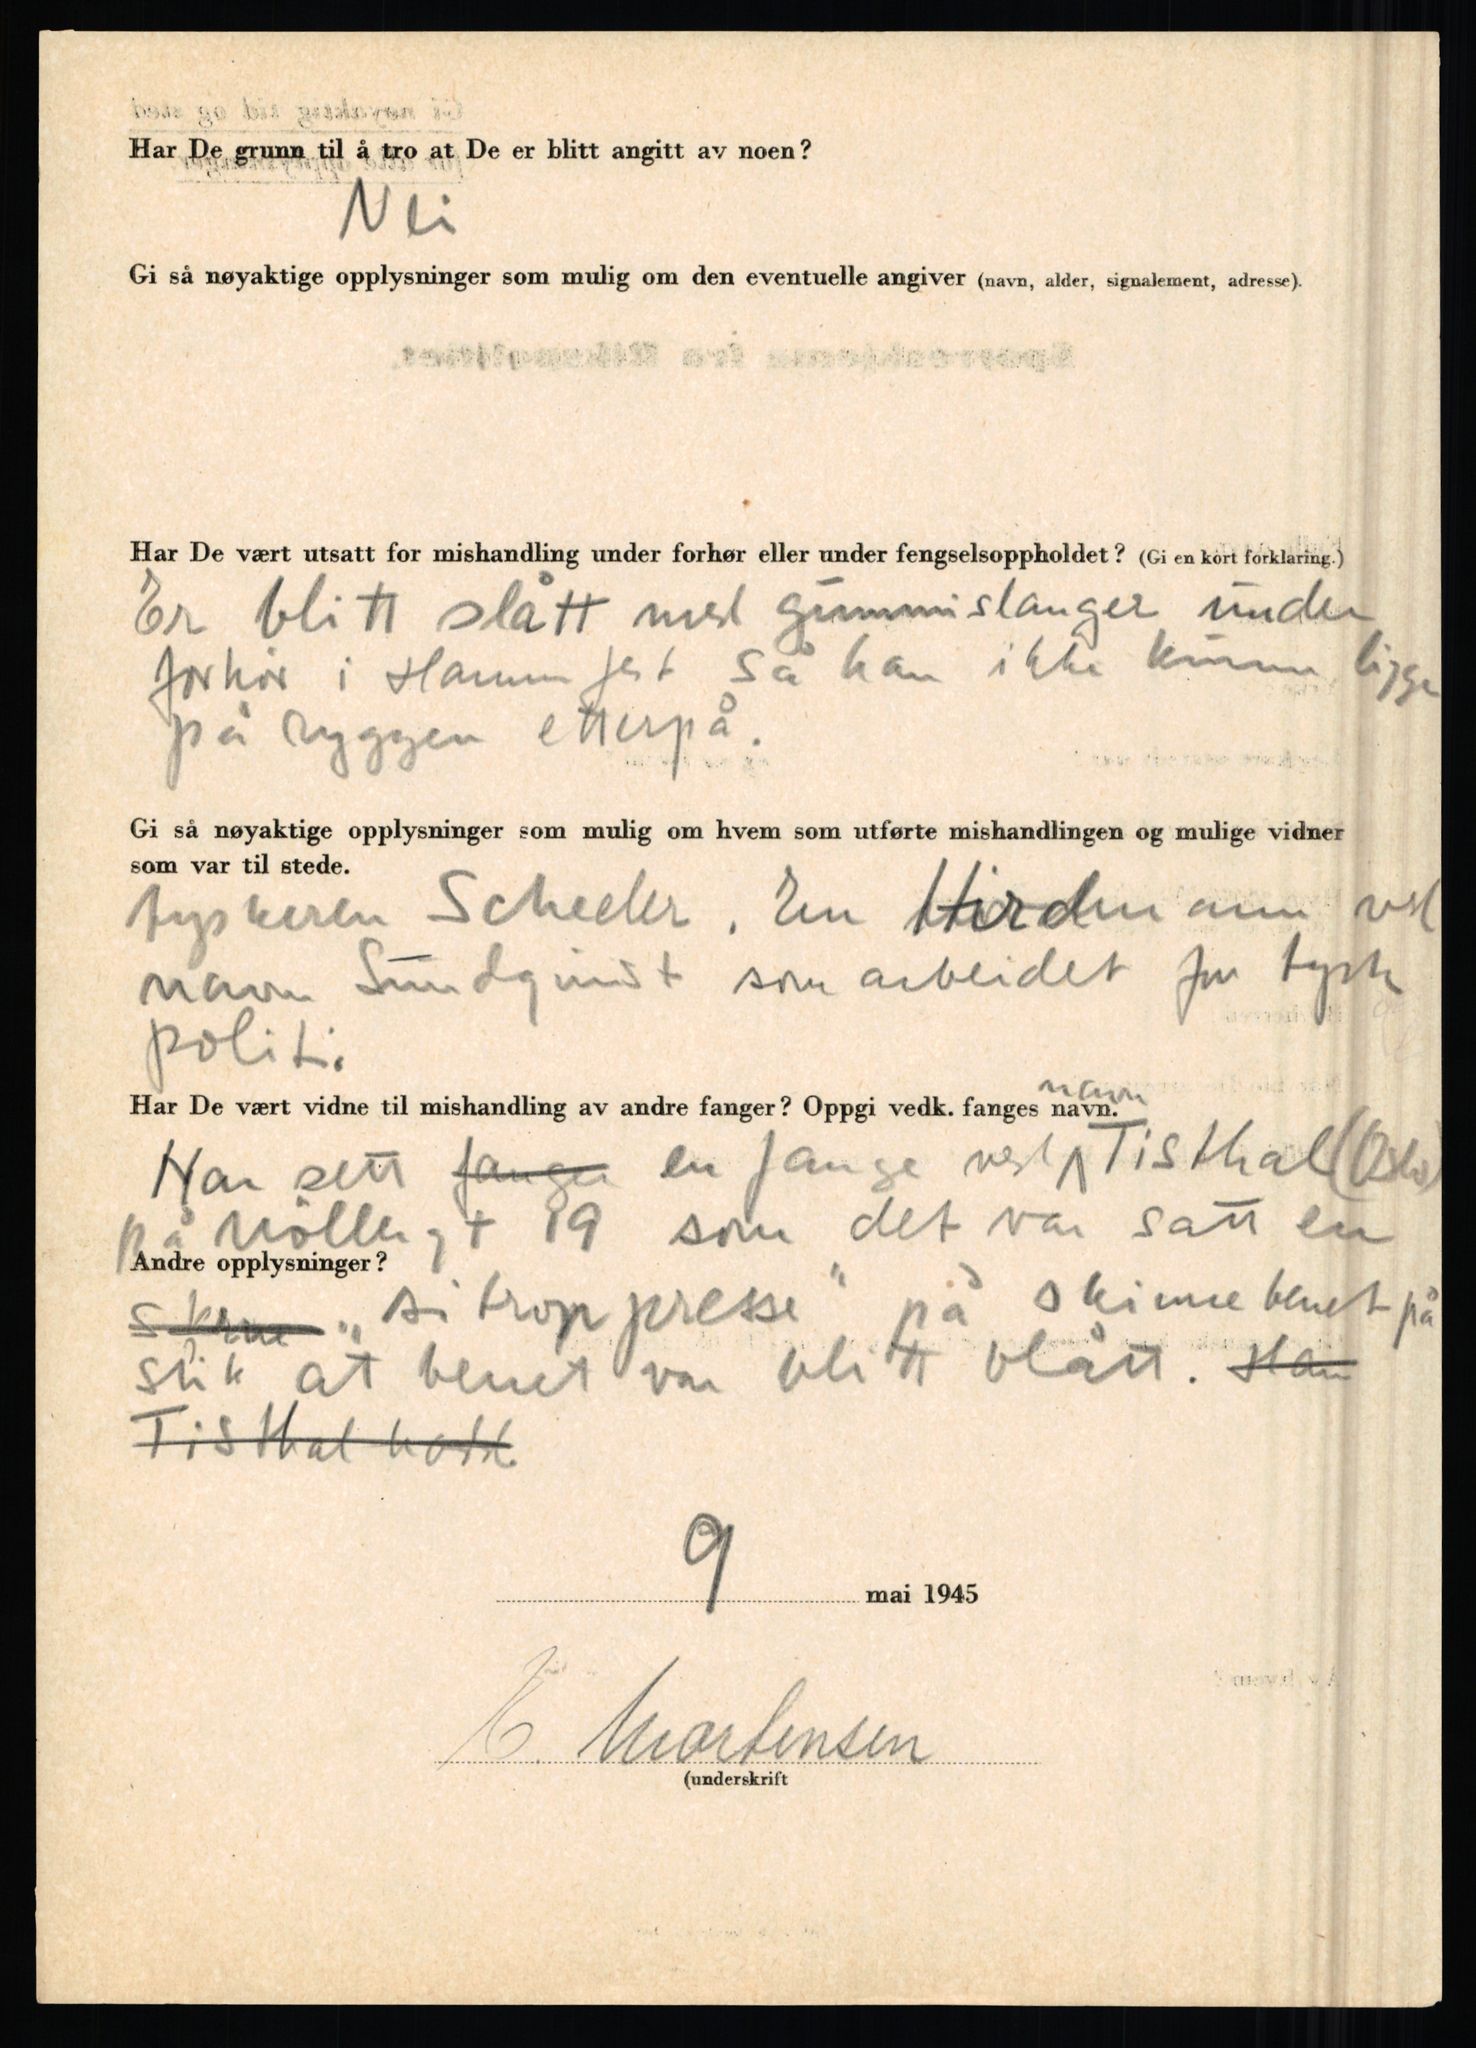 Har De grunn til å tro at De er blitt angitt av noen?
Nei
Gi så nøyaktige opplysninger som mulig om den eventuelle angiver (navn, alder, signalement, adresse).
Har De vært utsatt for mishandling under forhør eller under fengselsoppholdet? (Gi en kort forklaring.)
Er blitt slått med gummislanger under
forhör i Hammfest så han ikke kunne ligge
på ryggen etterpå.
Gi så nøyaktige opplysninger som mulig om hvem som utførte mishandlingen og mulige vidner
som var til stede.
tyskeren Scheeler. En Hirdmann ved
navn Sundquist som arbeidet for tysk
politi.
Har De vært vidne til mishandling av andre fanger? Oppgi vedk. fanges navn.
navn
Har sett fanger en fange ved Tisthal (Oslo)
på Möllergt 19 som det var satt en
Andre opplysninger?
"sitronpresse" på skinnebenet på
slik at benet var blitt blått. Han
Tisthal
9 mai 1945
E. Mortensen
(underskrift